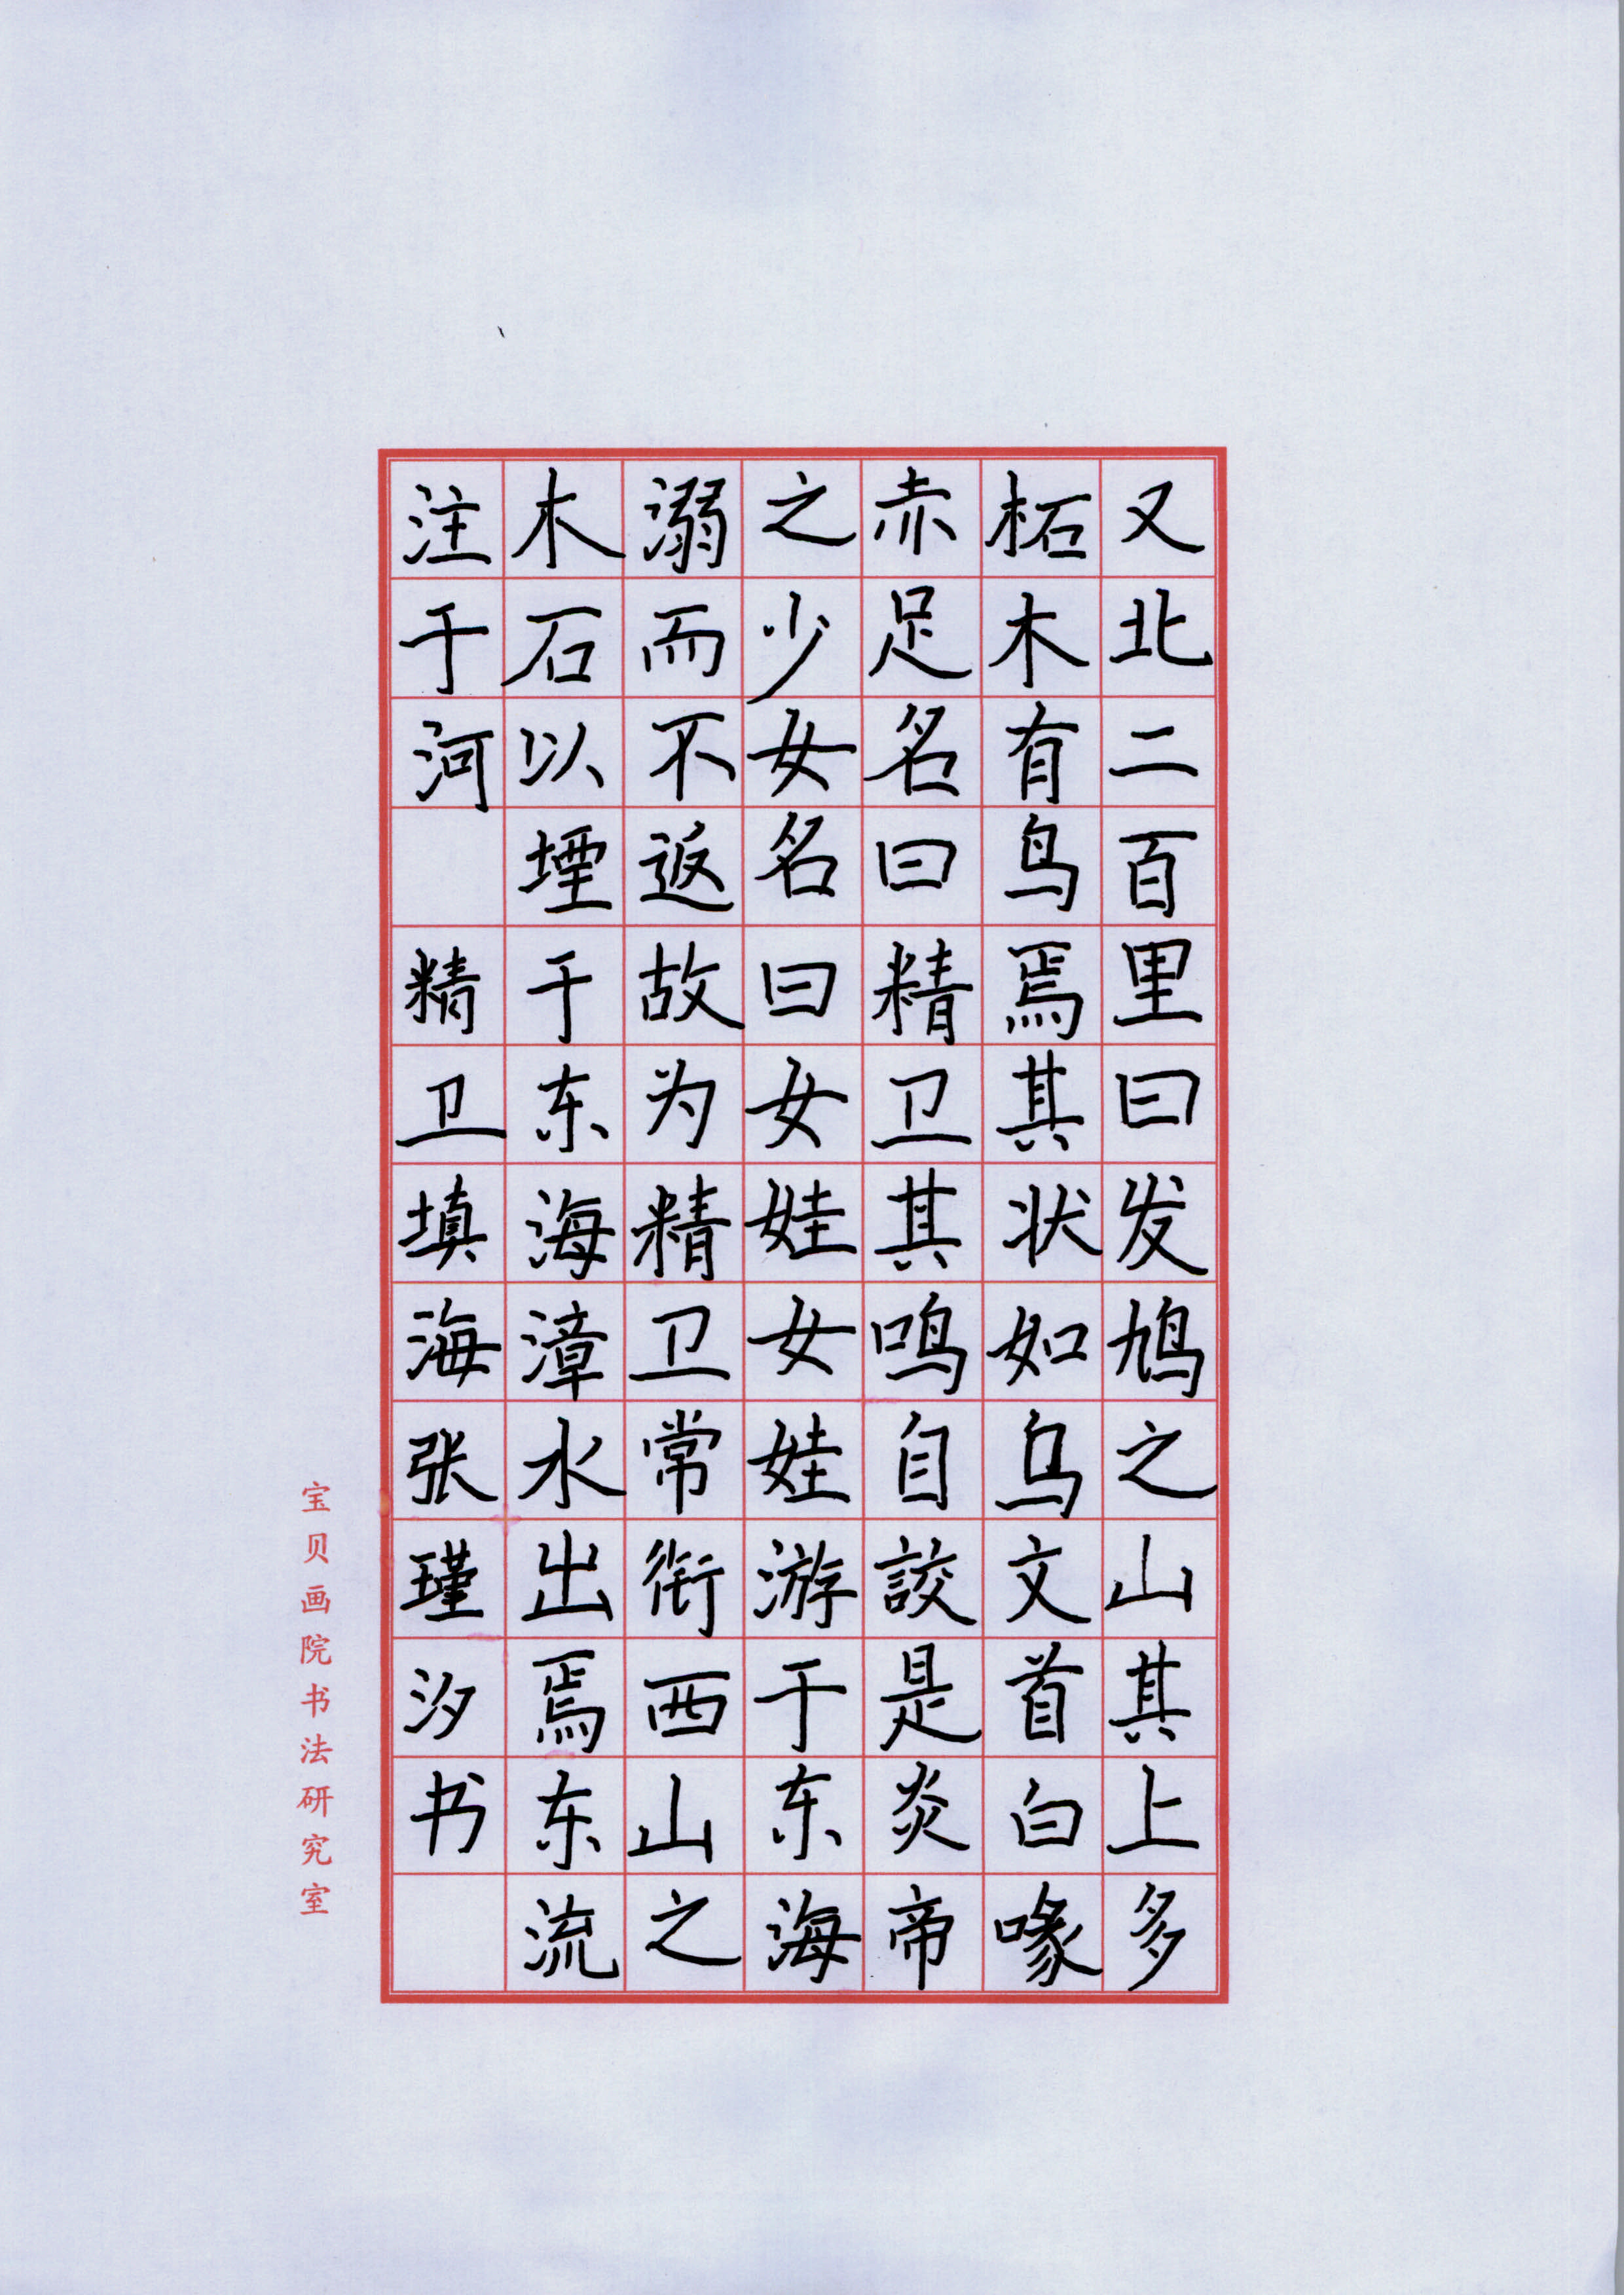 又北二百里曰发鸠之山其上多
柘木有鸟焉其状如乌文首白喙
赤足名曰精卫其鸣自詨是炎帝
之少女名曰女娃女娃游于东海
溺而不返故为精卫常衔西山之
木石以堙于东海漳水出焉东流
注于河 精卫填海张瑾汐书
宝贝画院书法研究室